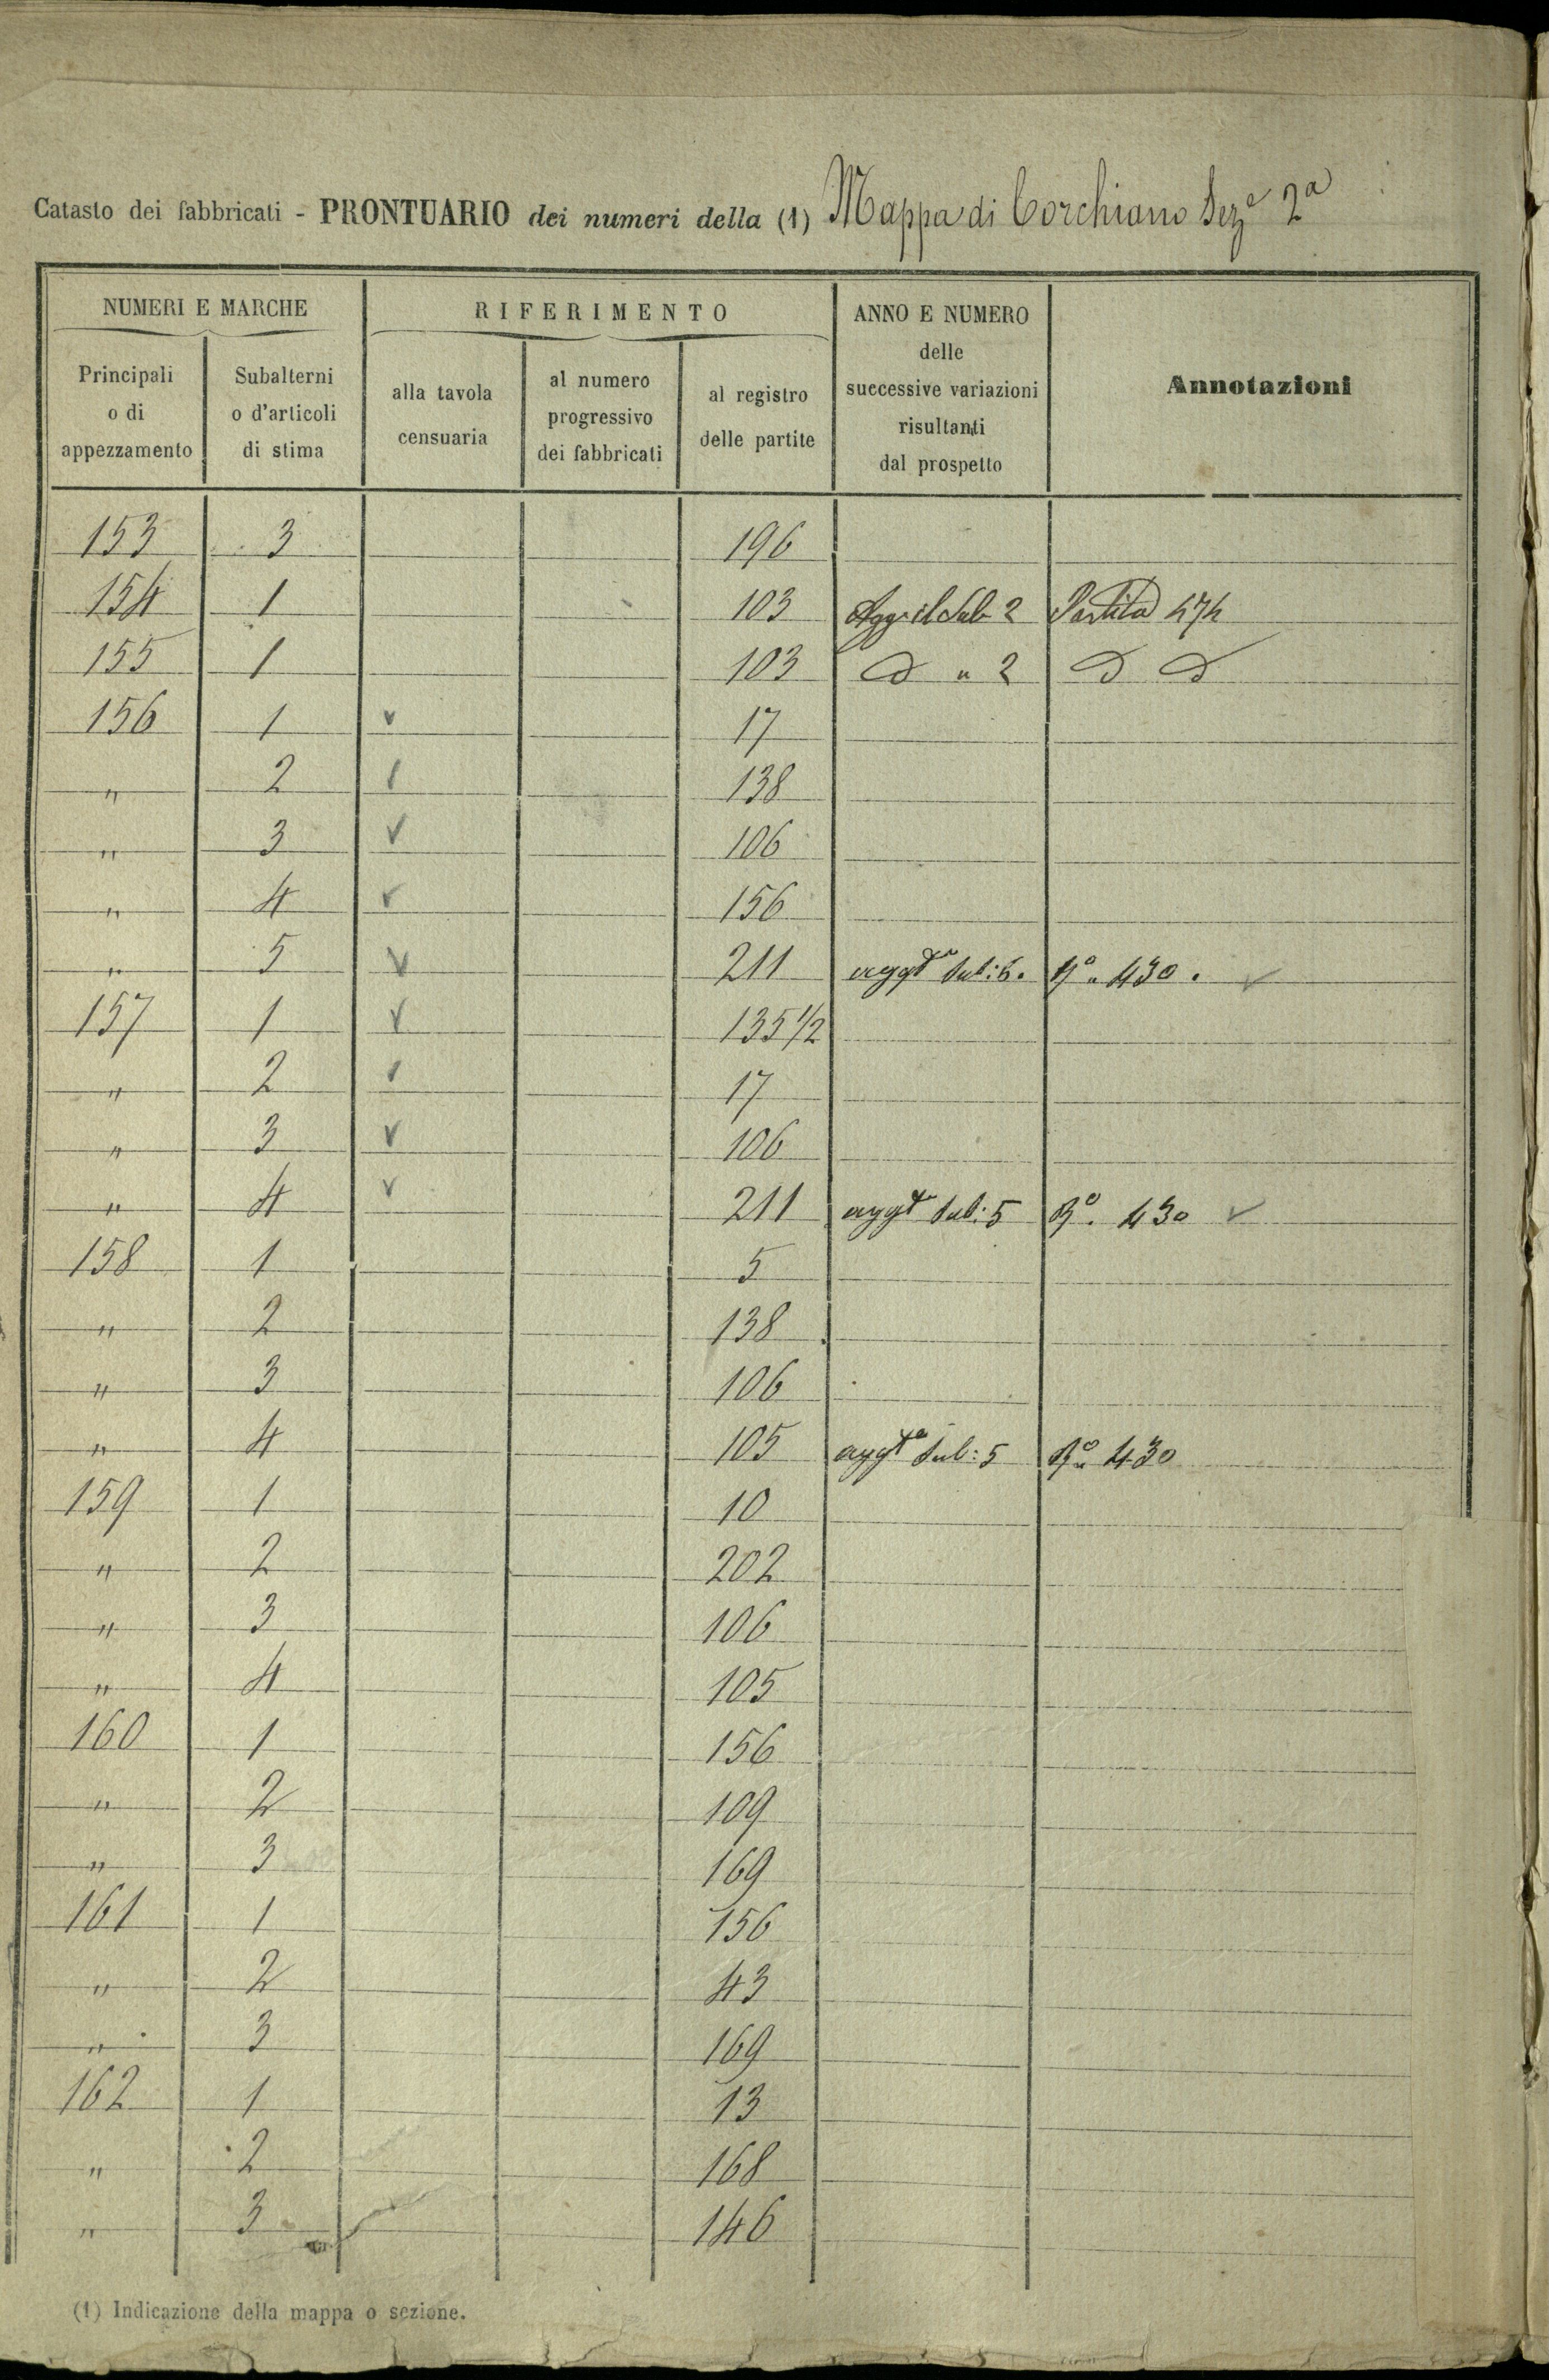 Catasto dei fabbricati - PRONTUARIO dei numeri della (1) Mappa di Corchiano Sez.e 2a
NUMERI E MARCHE
RIFERIMENTO
ANNO E NUMERO
delle
successive variazioni
risultanti
dal prospetto
Annotazioni
Principali
o di
appezzamento
Subalterni
o d'articoli
di stima
alla tavola
censuaria
al numero
progressivo
dei fabbricati
al registro
delle partite
153 3 196
154 1 103 Agg. il Sub 2 Partita 474
155 1 103 " 2
156 1 v 17
" 2 138
" 3 v 106
" 4 v 156
" 5 v 211 aggto sub: 6. 430. v
157 1 v 135 1/2
" 2 17
" 3 v 106
" 4 v 211 aggto sub: 5 430 v
158 1 5
" 2 138
" 3 106
" 4 105 aggto sub: 5 430
159 1 10
" 2 202
" 3 106
" 4 105
160 1 156
" 2 109
" 3 169
161 1 156
" 2 43
" 3 169
162 1 13
" 2 168
" 3 146
(1) Indicazione della mappa o sezione.